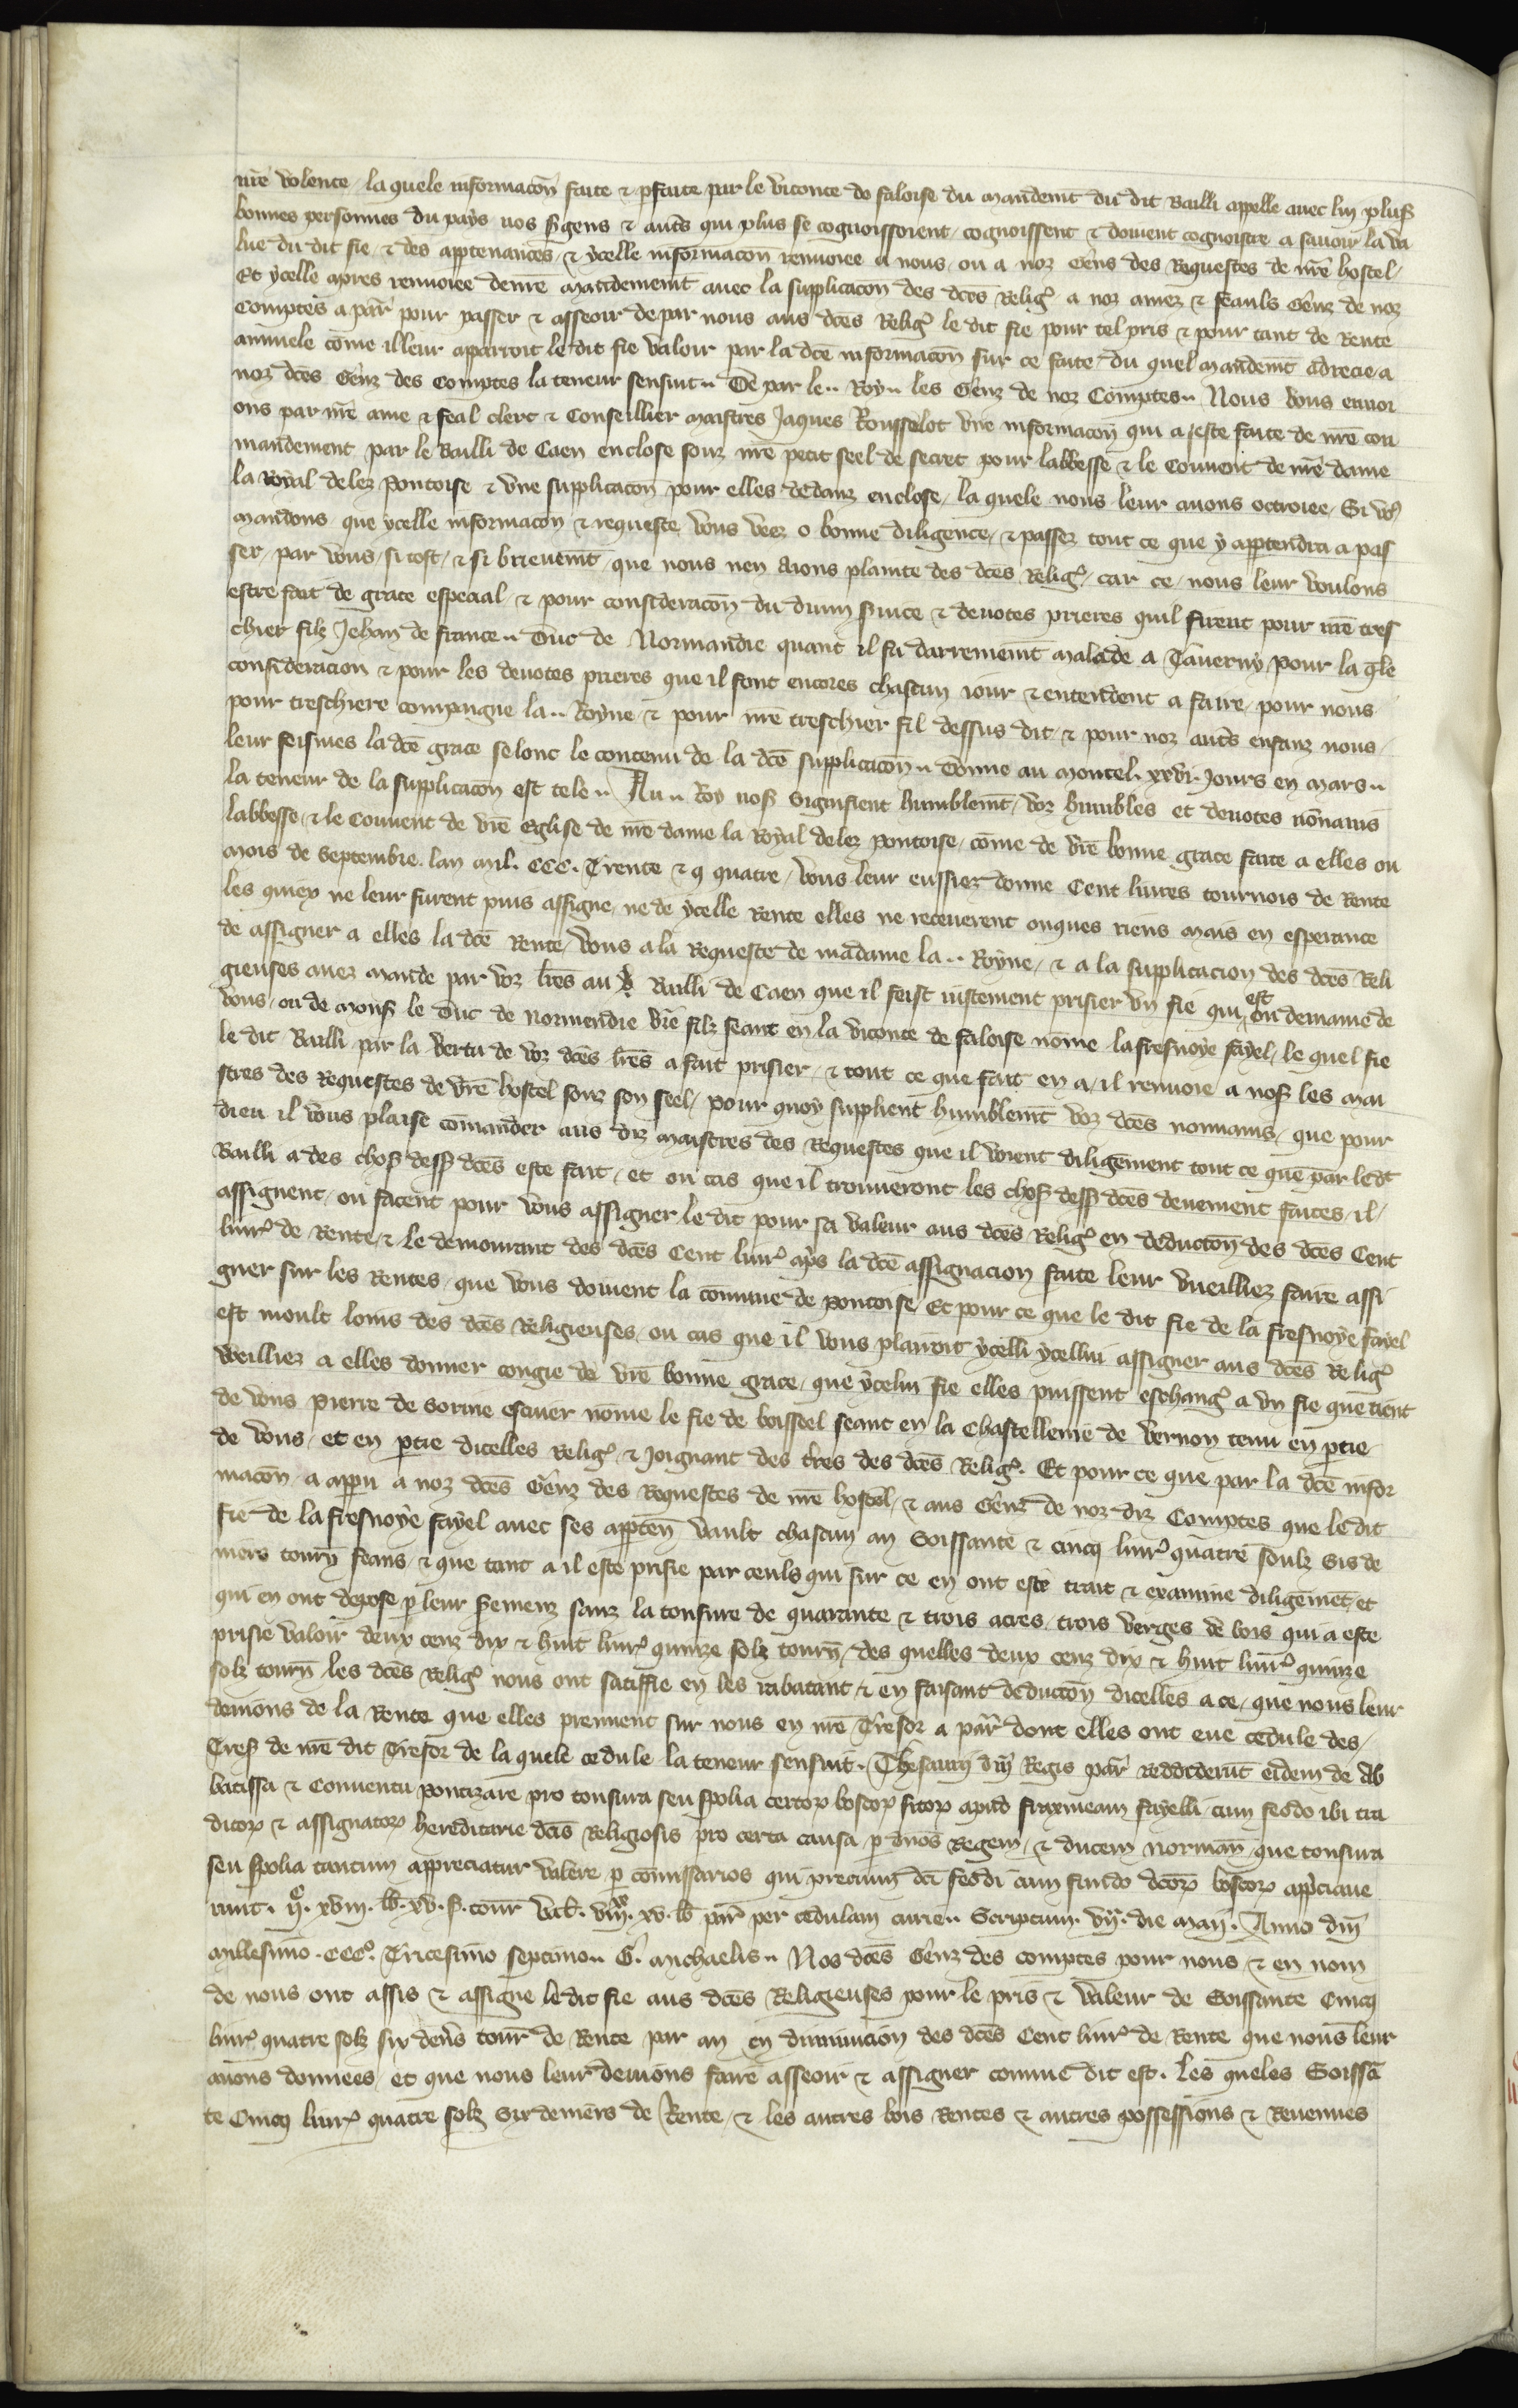 nr̃e volente / la quele informacõn faite & pfaite par le viconte de faloise du mandemt̃ du dit Bailli appelle avec lui plus̃
bonnes personnes du pays nos s̃gens & aut̃s qui plus se cognoissoient / cognoissent & doivent cognoistre a savoir la va
lue du dit fie / & des appartenances / & ycelle informacõn renvoiee a nous / ou a noz Gẽns des Requestes de nr̃e hostel /
Et ycelle apres renvoiee de nr̃e mandement̃ avec la supplicacõn des dc̃es Relig̃ a noz amez & feauls Gẽnz de noz
Comptes a par̃ pour passer & asseoir de par nous aus dc̃es Relig̃ le dit fie pour tel pris & pour tant de Rente
annuele cõme il leur aparroit le dit fie valoir par la dc̃e informacõn sur ce faite / du quel mandemt̃ adrecie a
noz dc̃es Gẽnz des Comptes la teneur sensuit .. De par le .. Roy .. les Gẽnz de noz Comptes .. Nous vous envoi
ons par nr̃e ame & feal clerc & Conseillier maistres Jaques Rousselot vne informacõn qui a este faite de nr̃e con
mandement par le Bailli de Caen enclose souz nr̃e petit seel de secret pour labbesse & le Couvent de nr̃e dame
la Royal delez Pontoise & vne supplicacõn pour elles dedanz enclose / la quele nous leur avons octroiee / Si vo9
mandons que ycelle informacõn & requeste vous veez o bonne diligence / & passez tout ce que y appartendra a pas
ser / par vous / si tost / & si briefvemt̃ / que nous nen aions plainte des dc̃es Relig̃ / car ce / nous leur voulons
estre fait de grace especial / & pour consideracõn du divin s̃vice & devotes prieres quil firent pour nr̃e tres
chier filz Jehan de france .. Duc de Normandie quant il fu darrenemt̃ malade a Taverny / pour la q̃le
consideracion & pour les devotes prieres que il font encores chascun jour & entendent a faire / pour nous
pour treschiere compaigne la .. Royne / & pour nr̃e treschier fil dessus dit / & pour noz aut̃s enfanz nous /
leur feismes la dc̃e grace selonc le contenu de la dc̃e supplicacõn .. Donne au moncel . xxvi . Jours en mars ..
la teneur de la supplicacõn est tele .. Au .. Roy nos̃ Signifient humblemt̃ / voz humbles et devotes nõnains
labbesse / & le Couvent de vr̃e Eglise de nr̃e dame la Royal delez pontoise / cõme de vr̃e bonne grace faite a elles ou
mois de Septembre . lan mil . CCC . Trente & quatre / vous leur eussiez donne Cent livres tournois de Rente
les quiex ne leur furent puis assigne / ne de ycelle Rente elles ne receverent onques riens mais en esperance
de assigner a elles la dc̃e Rente / vous a la Requeste de madame la .. Royne / & a la supplicacion des dc̃es Reli
gieuses avez mande par voz lr̃es au Bailli de Caen que il feist justement prisier vn fie qui est ou demaine de
vous / ou de mons̃ le Duc de normendie vr̃e filz seant en la viconte de faloise nõme la fresnoye fayel / le quel fie
le dit Bailli par la vertu de voz dc̃es lr̃es a fait prisier / & tout ce que fait en a / il renvoie a nos̃ les mai
stres des Requestes de vr̃e hostel souz son seel / pour quoy supplient humblemt̃ voz dc̃es nonnains / que pour
dieu il vous plaise cõmander aus diz maistres des Requestes que il voient diligẽment tout ce que par led̃t
Bailli a des chos̃ dess̃ dc̃es este fait / et ou cas que il trouveront les chos̃ dess̃ dc̃es deuement faites / il /
assignent / ou facent pour vous assigner le dit pour sa valeur aus dc̃es Relig̃ en deductõn des dc̃es Cent
livr̃ de Rente / & le demourant des dc̃es Cent livr̃ ap̃s la dc̃e assignacion faite leur vueilliez faire assi
gner sur les Rentes / que vous doivent la cõmune de pontoise / Et pour ce que le dit fie de la fresnoye fayel
est moult loins des dc̃es Religieuses / ou cas que il vous plairoit ycelli ycellui assigner aus dc̃es Relig̃
vueilliez a elles donner congie de vr̃e bonne grace / que ycelui fie elles puissent eschang̃ a vn fie que tient
de vous Pierre de Sorine escuier nõme le fie de boisseel seant en la Chastellenie de Vernon tenu en p̃tie
de vous / et en p̃tie dicelles Relig̃ & joignant des t̃res des dc̃es Relig̃ . Et pour ce que par la dc̃e infor
macõn / a apparu a noz dc̃es Gẽnz des Requestes de nr̃e hostel / & aus Gẽnz de noz diz Comptes que le dit
fie de la fresnoye fayel avec ses apparten̄ vault chascun an Soissante & cinq livr̃ quatre soulz Sis de
niers tourñ feans / & que tant a il este prisie par ceuls qui sur ce en ont este trait & examine diligẽmet̃ / et
qui en ont depose p̃ leur s̃emenz sanz la tonsure de quarante & trois acres / trois verges de bois qui a este
prisie valoir deux cenz dix & huit livr̃ quinze solz tourñ / des quelles deux cenz dix & huit livr̃ quinze
solz tourñ les dc̃es Relig̃ nous ont satiffie en les rabatant & en faisant deductõn dicelles a ce / que nous leur
devions de la Rente que elles prennent sur nous en nr̃e Tresor a par̃ dont elles ont eue cedule des /
Tres̃ de nr̃e dit Tresor de la quele cedule la teneur sensuit . Thesaurarij dñi Regis par̃ reddiderũt eidem de Ab
batissa & Conventu pontizare pro tonsura seu spolia certor̃ boscor̃ sitor̃ apud fraxineam fayelli / cum feodo ibi tra
ditor̃ & assignator̃ hereditarie dc̃is Religiosis pro certa causa / p̃ dños Regem / & ducem normañ / que tonsura
seu spolia tantum appreciatur valere p̃ cõmissarios qui precium dc̃i feodi cum fundo dc̃or̃ boscor̃ app̃ciave
runt . ijᶜ . xviij . lb̃ . xv . s̃ . tour̃ val̃ . viijˣˣ . xv . lb̃ par̃ per cedulam curie .. Scriptum . vijᵃ . die maij . Anno dñi
millesimo . CCCº . Tricesimo septimo .. G̃ . michaelis .. Nos dc̃es Gẽnz des comptes pour nous / & en nom
de nous ont assis & assigne le dit fie aus dc̃es Religieuses pour le pris & valeur de Soissante Cinq
livr̃ quatre solz six deñs tour̃ de Rente par an en diminucion des dc̃es Cent livr̃ de Rente que nous leur
avons donnees / et que nous leur devions faire asseoir & assigner comme dit est . les queles Soissã
te Cinq livr̃ quatre solz Six deniers de Rente / & les autres bois Rentes & autres possessions & Revenues